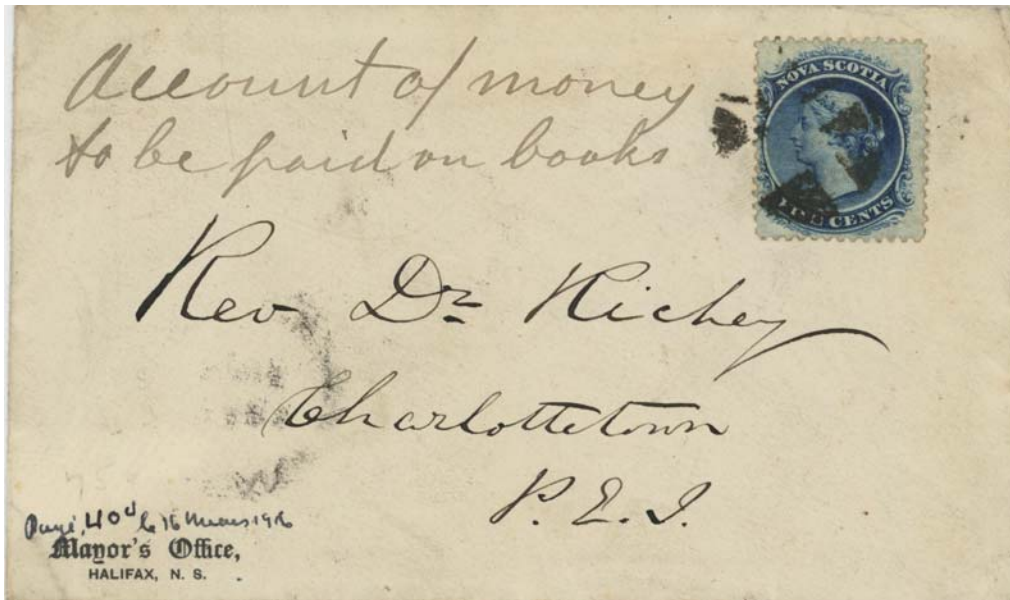 Account of money
to be paid on books
NOVA SCOTIA
FIVE CENTS
Rev Dr Richey
Charlottetown
P. E. I.
Payé 40d le 16 Mars
Mayor's Office,
HALIFAX, N. S.